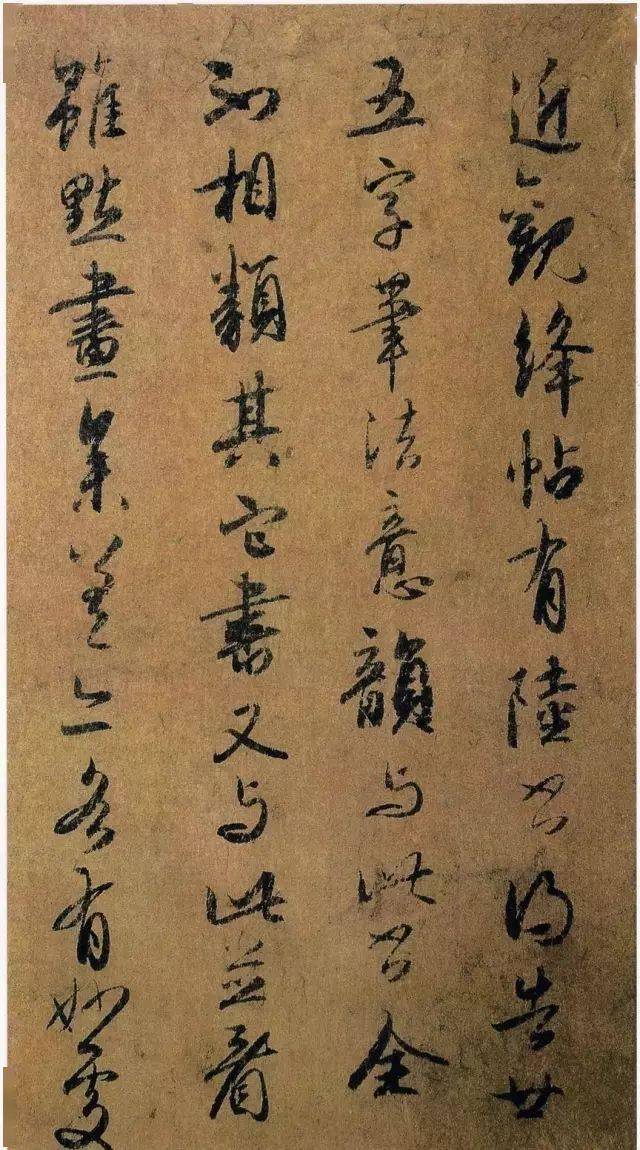 近觀絳帖有陸書得告廿
五字筆法意韻與此書全
不相類其它書又與此並看
雖點畫參差亦各有妙處